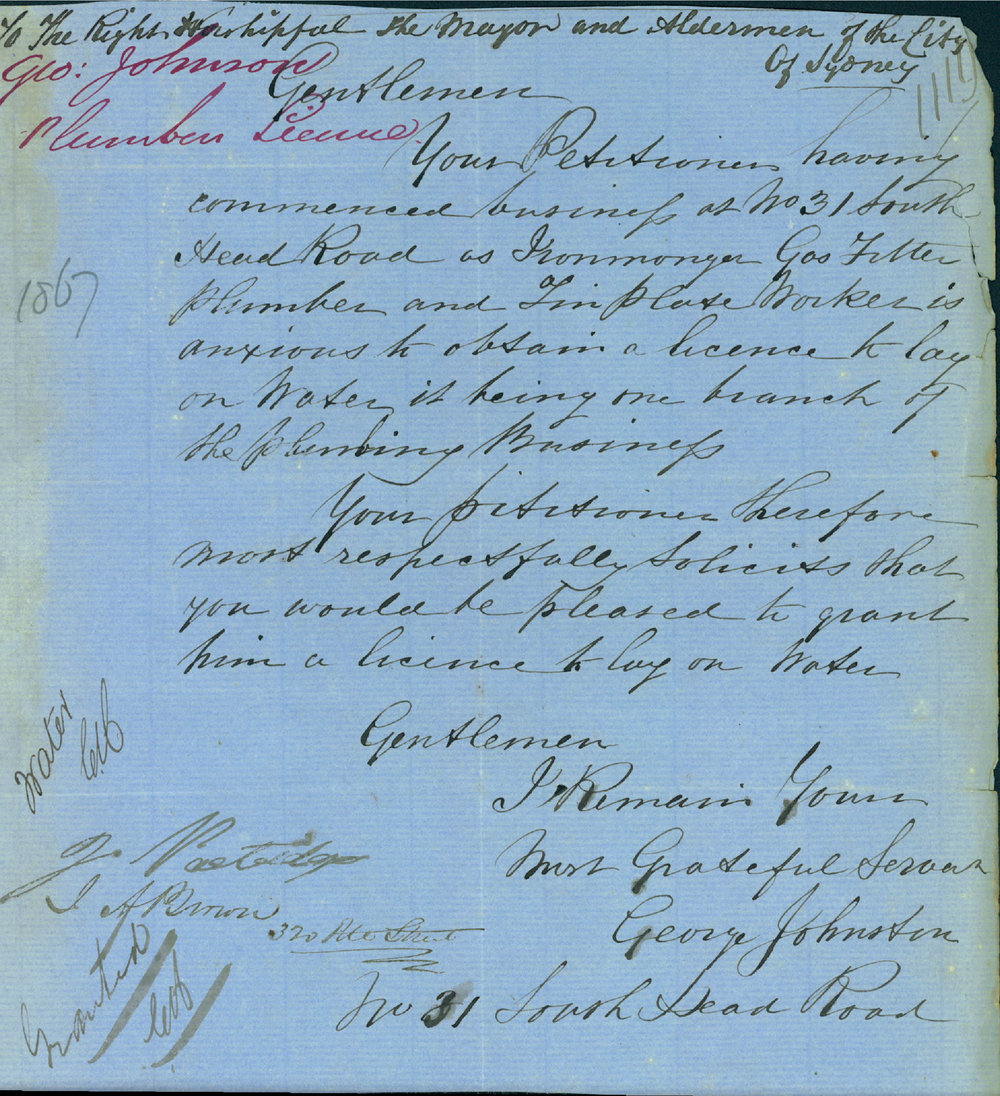 To The Right Worshipful the Mayor and Aldermen of the City
Of Sydney
Geo: Johnson
Plumber License
1117
Gentlemen
Your Petitioner having
commenced business at No 31 South
Head Road as Ironmonger Gas Fitter
plumber and Tin plate Worker is
anxious to obtain a licence to lay
on Water it being one branch of
the plumbing Business
Your petitioner therefore
most respectfully Solicits that
you would be pleased to grant
him a licence to lay on Water
1867
Gentlemen
I Remain Your
Most Grateful Servant
George Johnston
No 31 South Head Road
Water
J A Brown
320 Street
Granted